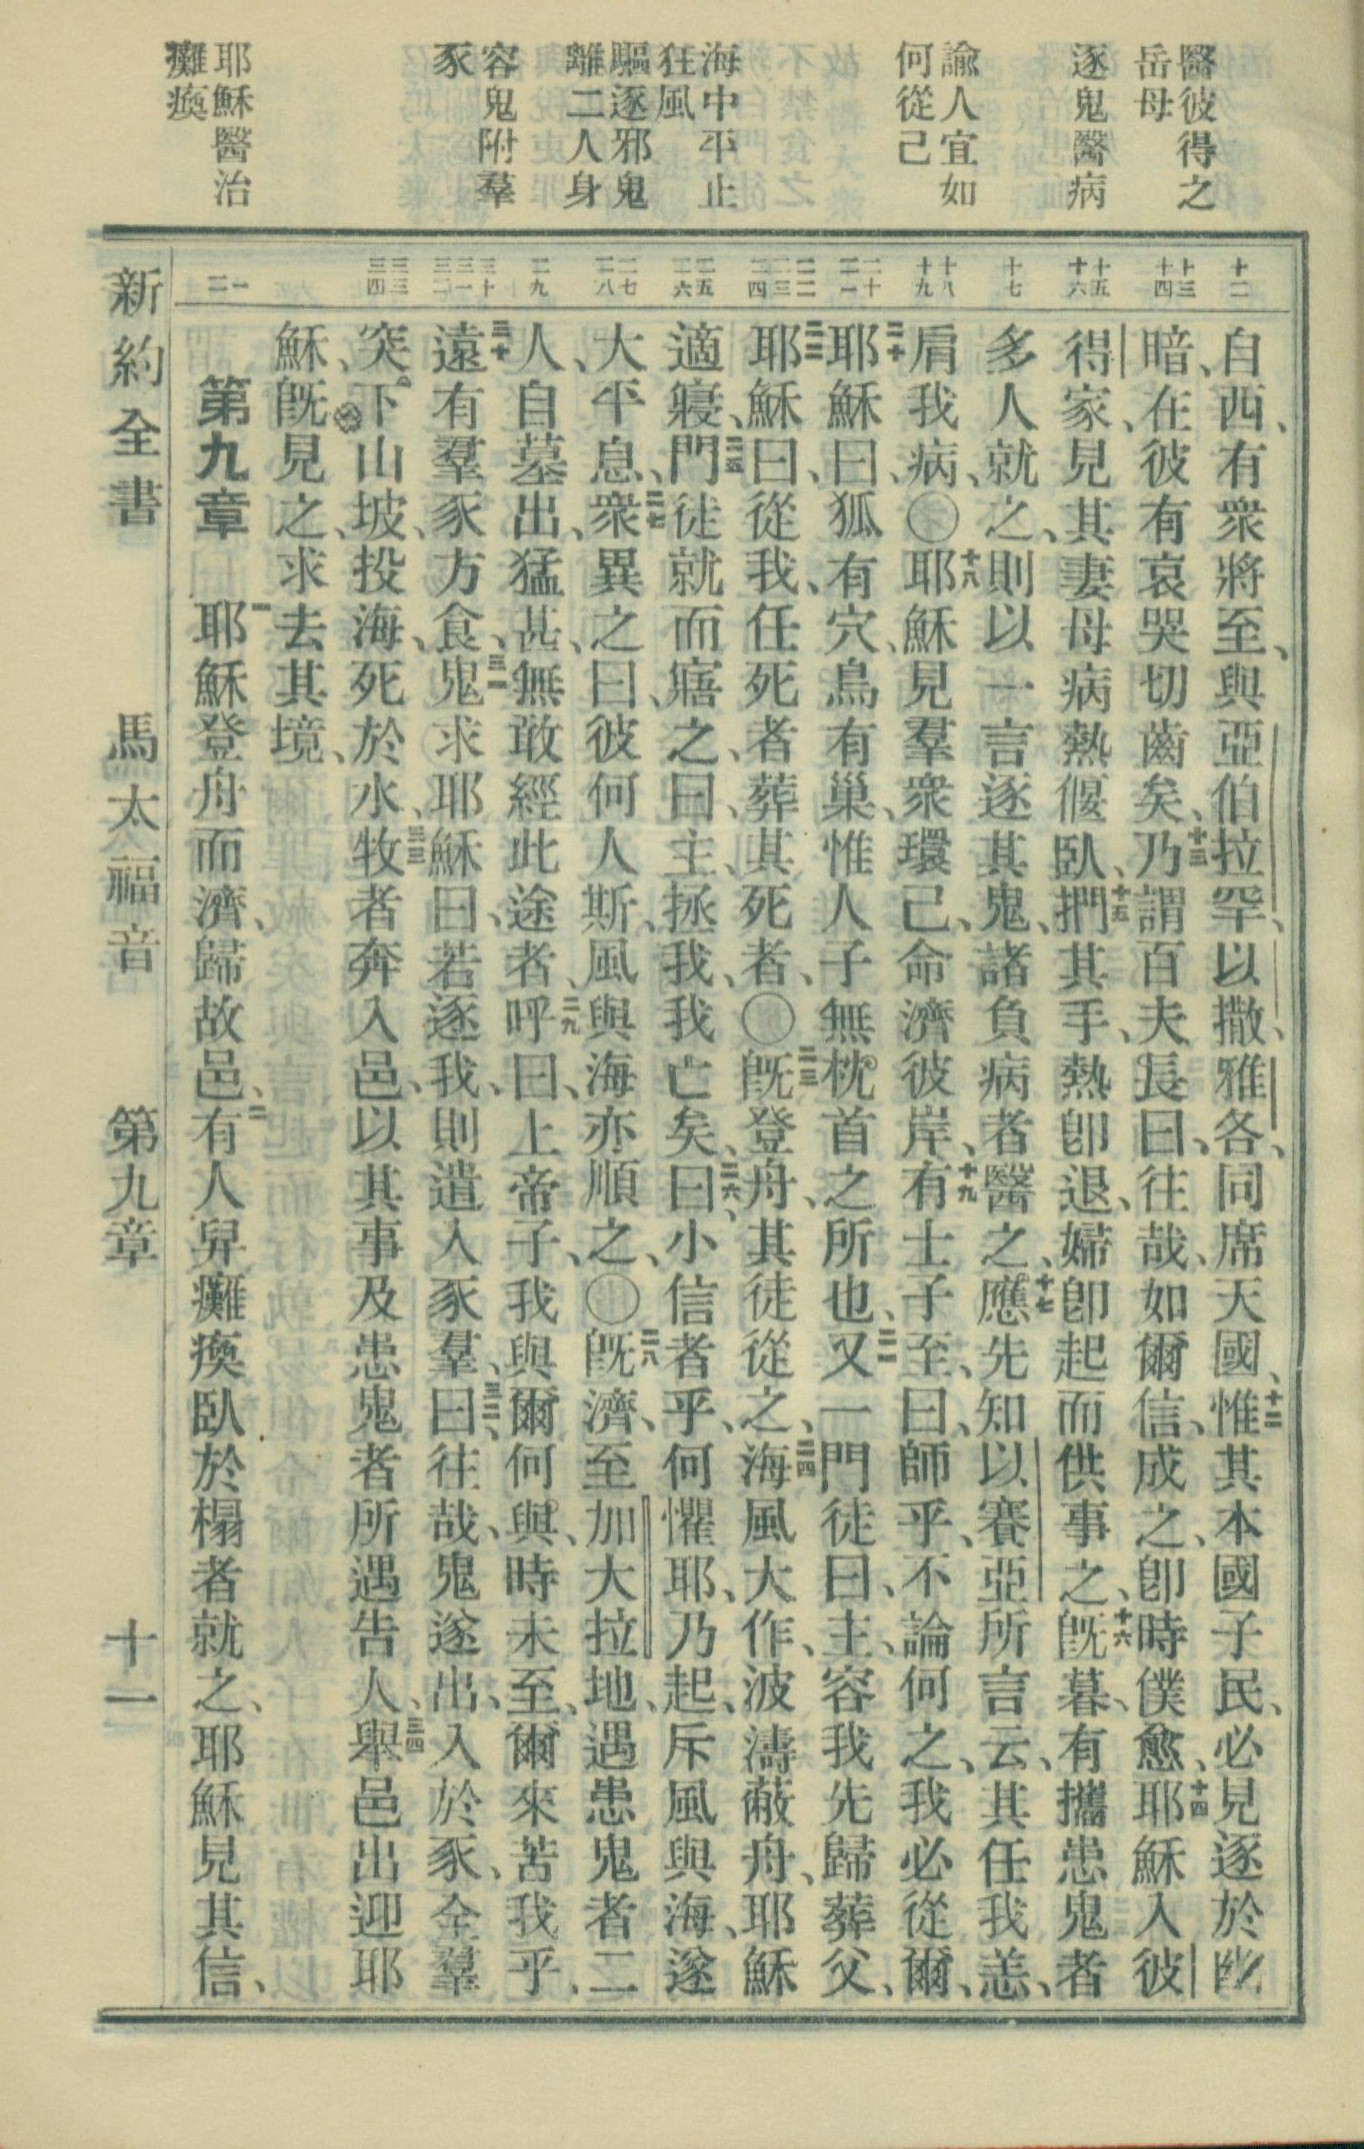 醫彼得之
岳母
逐鬼醫病
諭人宜如
何從己
海中平止
狂風
驅逐邪鬼
離二人身
容鬼附羣
豕
耶穌醫治
癱瘓
十二
十三
十四
十五
十六
十七
十八
十九
二十
二一
二二
二三
二四
二五
二六
二七
二八
二九
三十
三一
三二
三三
三四
一
二
自西、有衆將至、與亞伯拉罕、以撒、雅各、同席天國、十二惟其本國子民、必見逐於幽
暗、在彼有哀哭切齒矣、十三乃謂百夫長曰、往哉、如爾信、成之、卽時僕愈、十四耶穌入彼
得家、見其妻母病熱偃臥、十五捫其手、熱卽退、婦卽起而供事之、十六旣暮、有攜患鬼者
多人就之、則以一言逐其鬼、諸負病者醫之、十七應先知以賽亞所言云、其任我恙、
肩我病、〇十八耶穌見羣衆環己、命濟彼岸、十九有士子至、曰、師乎、不論何之、我必從爾、
二十耶穌曰、狐有穴、鳥有巢、惟人子無枕首之所也、二一又一門徒曰、主、容我先歸葬父、
二二耶穌曰、從我、任死者葬其死者、〇二三旣登舟、其徒從之、二四海風大作、波濤蔽舟、耶穌
適寢、二五門徒就而寤之、曰、主、拯我、我亡矣、二六曰、小信者乎、何懼耶、乃起、斥風與海、遂
大平息、二七衆異之曰、彼何人斯、風與海亦順之、〇二八旣濟、至加大拉地、遇患鬼者二
人、自墓出、猛甚、無敢經此途者、二九呼曰、上帝子、我與爾何與、時未至、爾來苦我乎、
三十遠有羣豕方食、三一鬼求耶穌曰、若逐我、則遣入豕羣、三二曰、往哉、鬼遂出、入於豕、全羣
突下山坡、投海、死於水、三三牧者奔入邑、以其事及患鬼者所遇告人、三四舉邑出迎耶
穌、旣見之、求去其境、
第九章　一耶穌登舟而濟、歸故邑、二有人舁癱瘓臥於榻者就之、耶穌見其信、
新約全書　馬太福音　第九章　十一